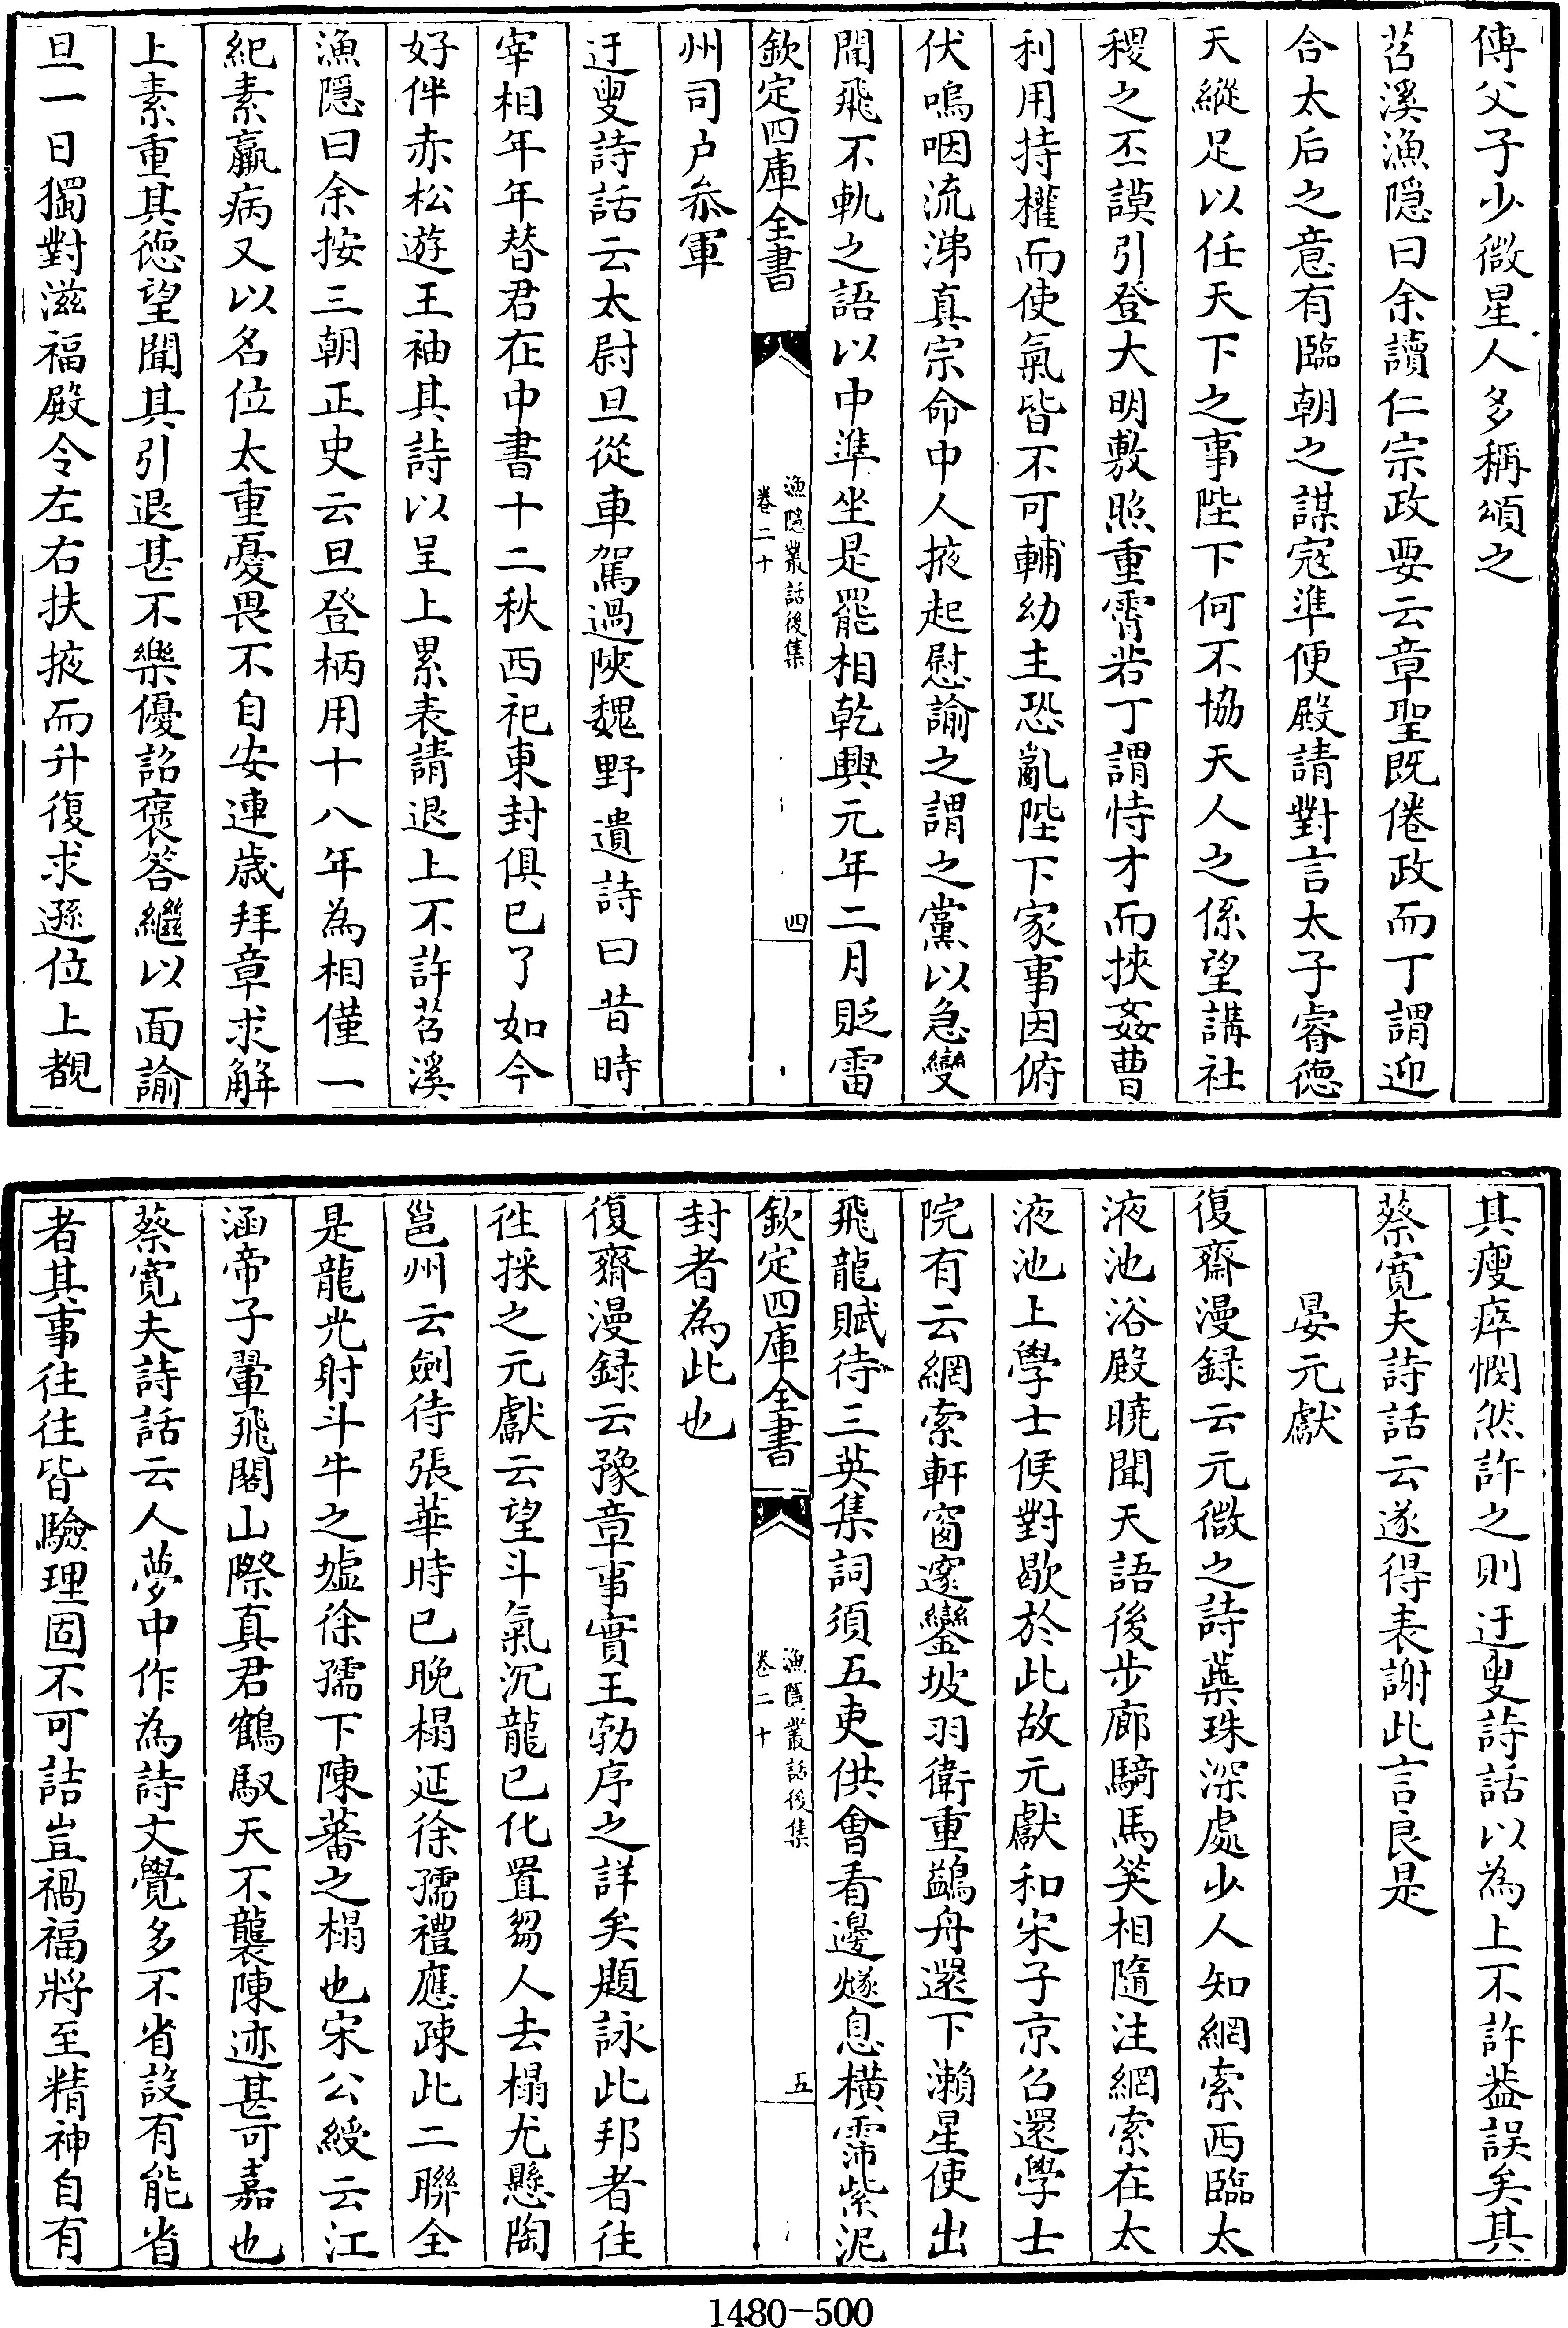 傅父子少微星人多稱頌之
苕溪漁隱曰余讀仁宗政要云章聖既倦政而丁謂迎
合太后之意有臨朝之謀寇準便殿請對言太子睿德
天縱足以任天下之事陛下何不協天人之係望講社
稷之丕謨引登大明敷照重霄若丁謂恃才而挾姦曹
利用持權而使氣皆不可輔幼主恐亂陛下家事因俯
伏嗚咽流涕真宗命中人掖起慰諭之謂之黨以急變
聞飛不軌之語以中準坐是罷相乾興元年二月貶雷
欽定四庫全書
漁隱叢話後集
卷二十
四
州司户叅軍
迂叟詩話云太尉旦從車駕過陜魏野遺詩曰昔時
宰相年年替君在中書十二秋西祀東封俱已了如今
好伴赤松遊王袖其詩以呈上累表請退上不許苕溪
漁隱曰余按三朝正史云旦登柄用十八年為相僅一
紀素羸病又以名位太重憂畏不自安連歲拜章求解
上素重其德望聞其引退甚不樂優詔褒答繼以面諭
旦一日獨對滋福殿令左右扶掖而升復求遜位上覩
其瘦瘁憫然許之則迂叟詩話以為上不許葢誤矣其
蔡寛夫詩話云遂得表謝此言良是
晏元獻
復齋漫録云元微之詩蘂珠深處少人知網索西臨太
液池浴殿曉聞天語後步廊騎馬笑相隨注網索在太
液池上學士候對歇於此故元獻和宋子京召還學士
院有云網索軒窗邃鑾坡羽衛重鷁舟還下瀨星使出
飛龍賦待三英集詞須五吏供會看邊燧息横霈紫泥
欽定四庫全書
漁隱叢話後集
卷二十
五
封者為此也
復齋漫録云豫章事實王勃序之詳矣題詠此邦者往
徃採之元獻云望斗氣沉龍已化置芻人去榻尤懸陶
邕州云劍待張華時已晚榻延徐孺禮應疎此二聯全
是龍光射斗牛之墟徐孺下陳蕃之榻也宋公綬云江
涵帝子翬飛閣山際真君鶴馭天不襲陳迹甚可嘉也
蔡寛夫詩話云人夢中作為詩文覺多不省設有能省
者其事往往皆驗理固不可詰豈禍福將至精神自有
1480-500